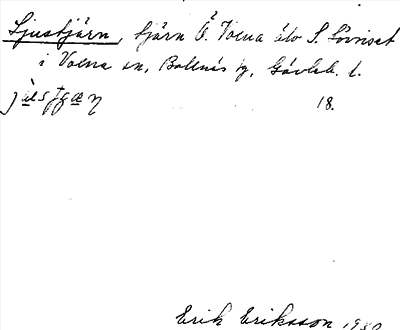 Ljustjärn, tjärn Ö. Voxna älv S. Lövriset
i Voxna sn, Bollnäs fg, Gävleb. l.
18.
Erik Eriksson 1930